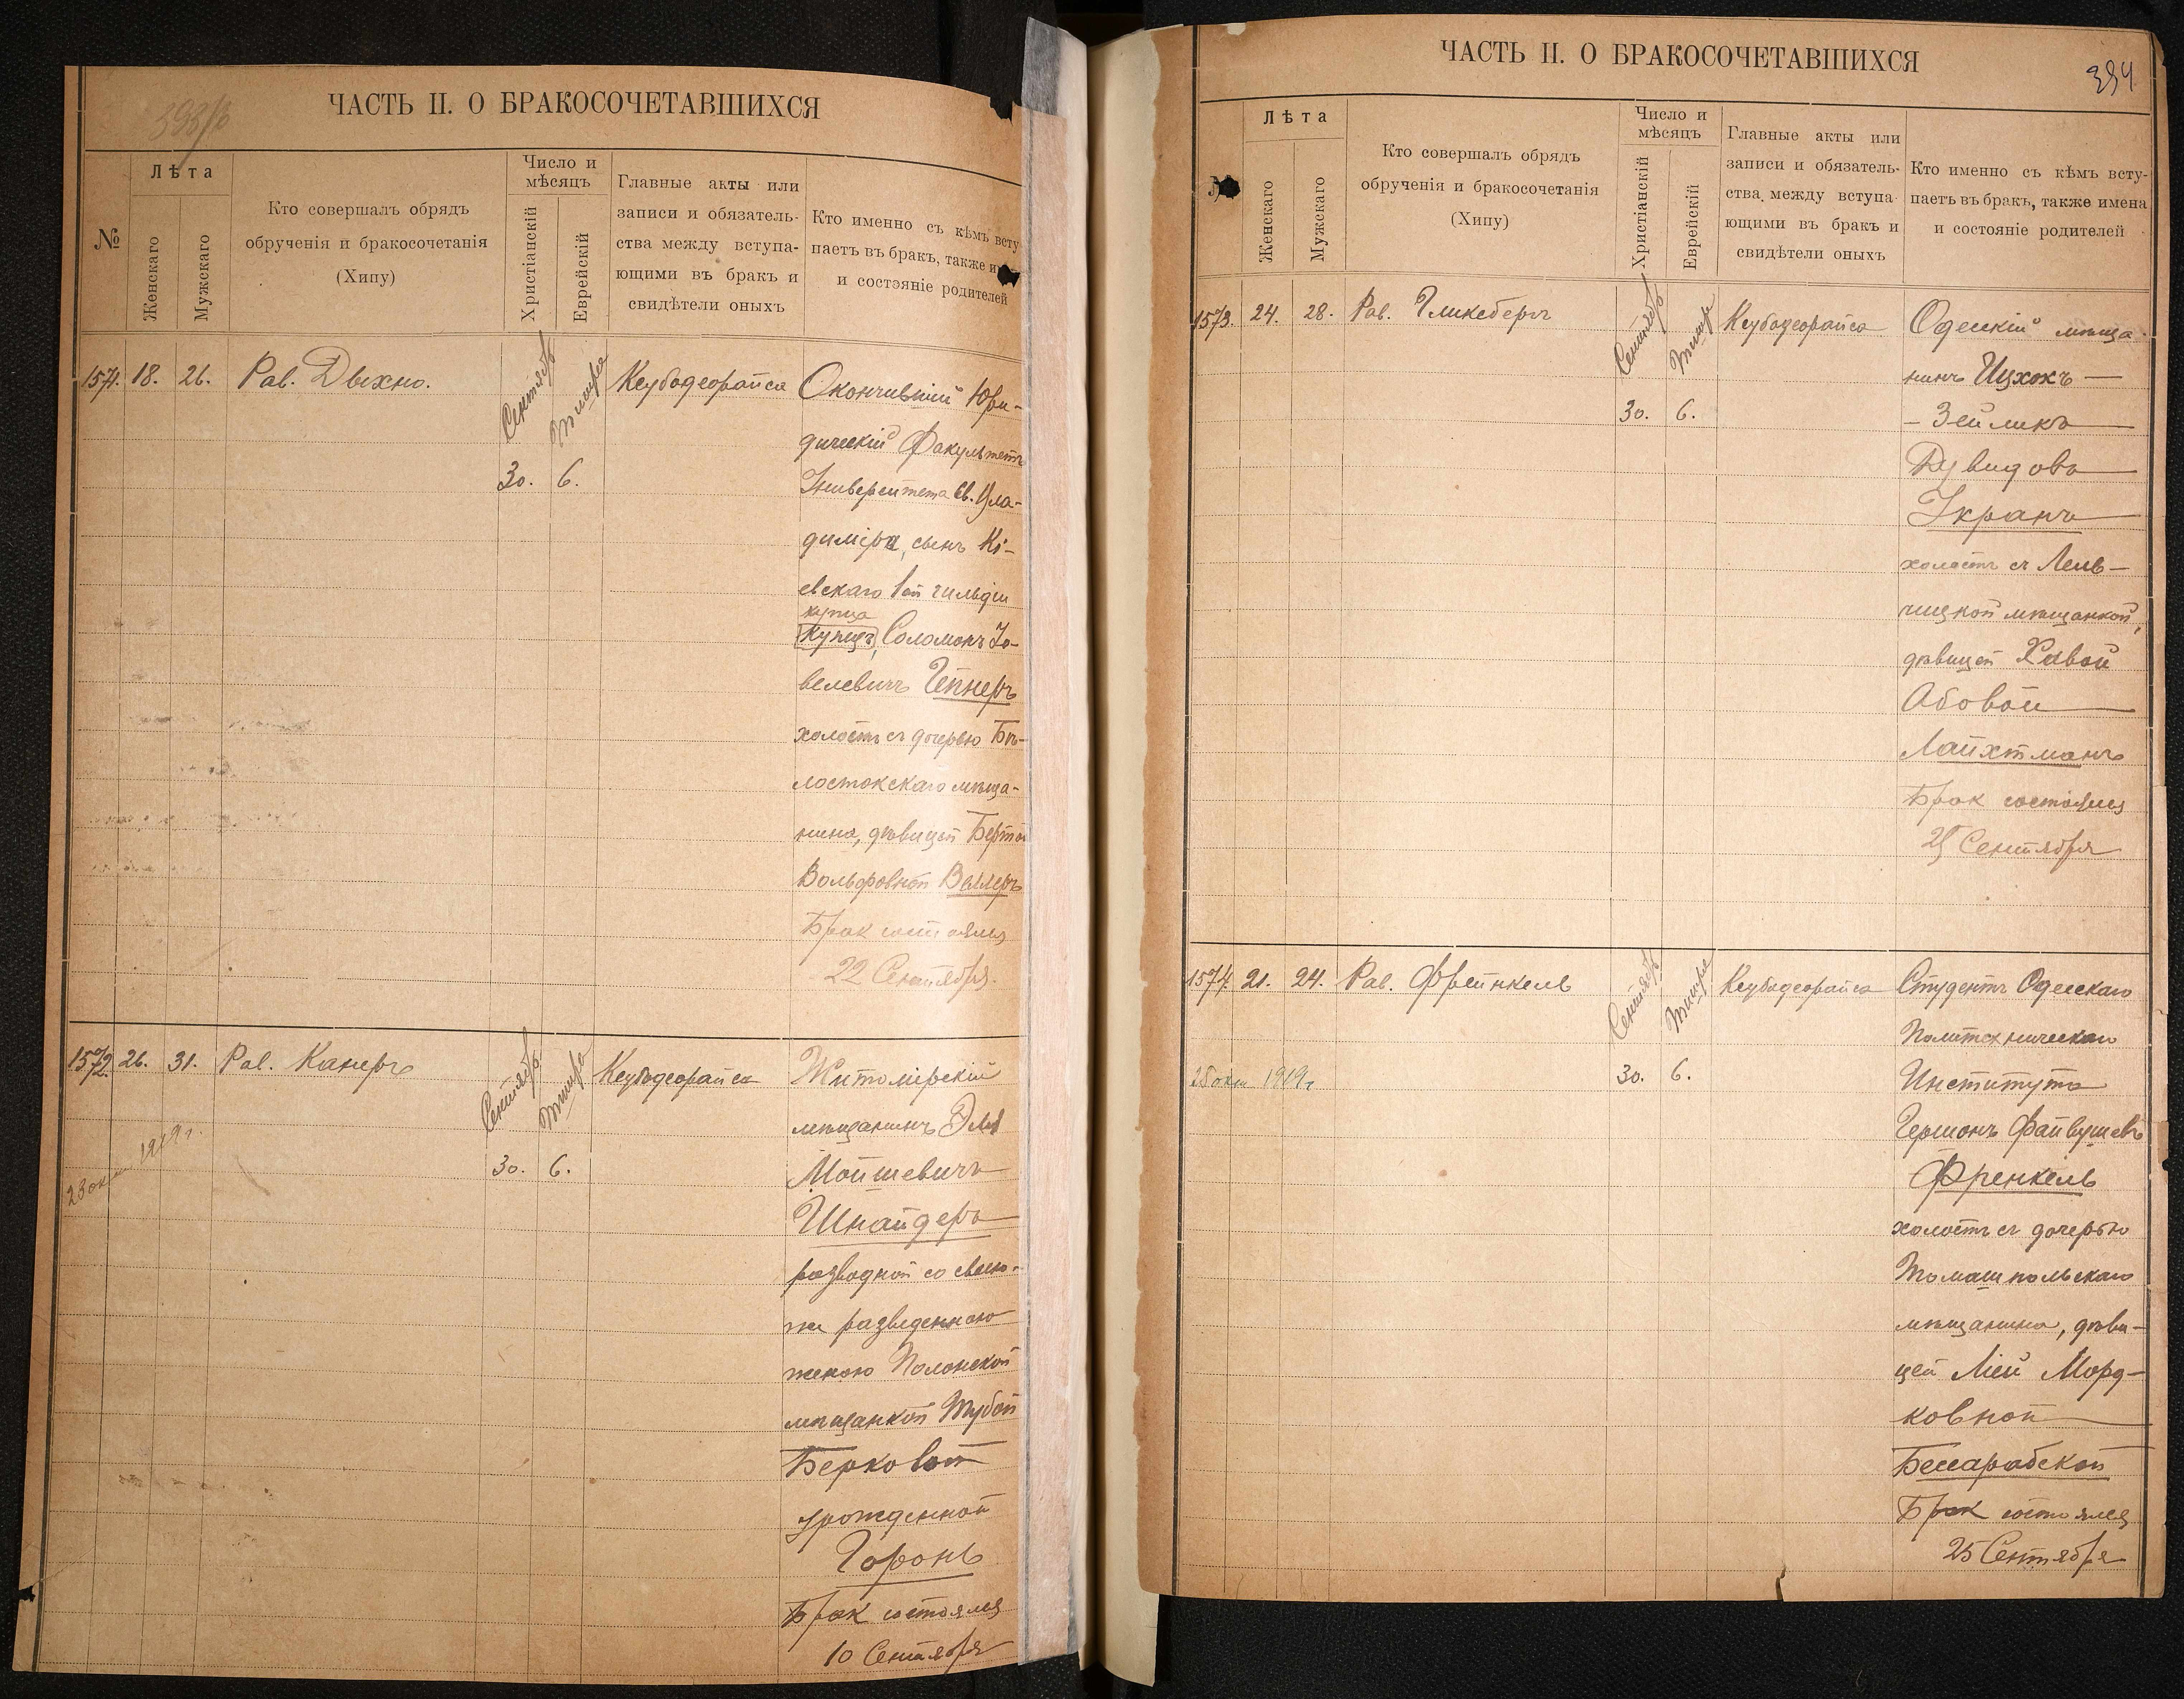 ЧАСТЬ II. О БРАКОСОЧЕТАВШИХСЯ
№
Лѣта
Женскаго
Мужскаго
Кто совершалъ обрядъ
обрученія и бракосочетанія
(Хипу)
Число и
мѣсяцъ
Христіанскій
Еврейскій
Главные акты или
записи и обязатель-
ства между вступа-
ющими въ бракъ и
свидѣтели оныхъ
Кто именно съ кѣмъ всту
паетъ въ бракъ, также и
и состэяніе родителей
1571. 18. 26. Рав. Дыхно.
Сентябрь Тишре
30. 6.
Кеубодеорайса
Окончившій Юри-
дическій Факультетъ
Университета Св. Вла-
диміра, сынъ Кі-
евскаго 1ой гильдіи
купца
Купецъ, Соломонъ Іо-
велевичъ Гепнеръ
холостъ съ дочерью Бѣ-
лостокскаго мѣща-
нина, дѣвицей Бертой
Вольфовной Веллеръ
Брак состоялся
22 Сентября.
1572. 26. 31. Рав. Канеръ
23 окт 1919 г.
Сентябрь Тишре
30. 6.
Кеубодеорайса
Житомірскій
мѣщанинъ Эля
Мойшевичъ
Шнайдеръ
разводной со своею-
же разведенною
женою Полонской
мѣщанкой Тубой
Берковой
урожденной
Горонь
Брак состоялся
10 Сентября
ЧАСТЬ II. О БРАКОСОЧЕТАВШИХСЯ
394
№
Лѣта
Женскаго
Мужскаго
Кто совершалъ обрядъ
обрученія и бракосочетанія
(Хипу)
Число и
мѣсяцъ
Христіанскій
Еврейскій
Главные акты или
записи и обязатель-
ства между вступа-
ющими въ бракъ и
свидѣтели оныхъ
Кто именно съ кѣмъ всту-
паетъ въ бракъ, также имена
и состояніе родителей
1573. 24. 28. Рав. Гликсбергъ
Сентябрь Тишре
30. 6.
Кеубодеорайса
Одесскій мѣща-
нинъ Ицхокъ —
— Зейликъ
Дувидовъ
Укранъ
холостъ съ Лель-
чицкой мѣщанкой,
дѣвицей Хавой
Абовой
Лайхтманъ
Брак состоялся
25 Сентября
1574. 21. 24. Рав. Френкель
25 окт 1919 г
Сентябрь Тишре
30. 6.
Кеубодеорайса
Студентъ Одесскаго
Политехническаго
Института
Гершонъ Файвушевъ
Френкель
холостъ съ дочерью
Томашпольскаго
мѣщанина, дѣви-
цей Ліей Морд-
ковной
Бессарабской
Брак состоялся
25 Сентября